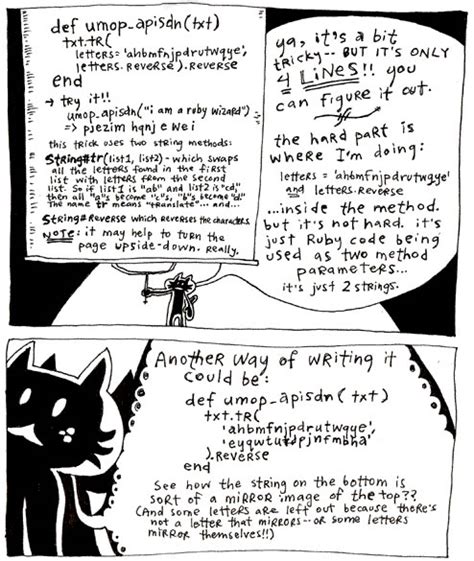 def umop_apisdn(txt)
txt.tr(
letters= 'ahbmfnjpdrutwqye',
letters.reverse).reverse
end
→ try it!!
umop_apisdn("i am a ruby wizard")
=> pjezim hqnj e we i
this trick uses two string methods:
String#tr(list1, list2) - which swaps
all the letters found in the first
list with letters from the second
list. So if list1 is "ab" and list2 is "cd,"
then all "a"s become "c"s, "b"s become "d."
The name tr means "translate"... and...
String#reverse which reverses the characters
NOTE: it may help to turn the
page upside-down. Really.
ya, it's a bit
tricky -- BUT IT'S ONLY
4 LINES!! you
can figure it out.
the hard part is
where I'm doing:
letters = 'ahbmfnjpdrutwqye'
and letters.reverse
...inside the method.
but it's not hard. it's
just Ruby code being
used as two method
parameters...
it's just 2 strings.
Another way of writing it
could be:
def umop_apisdn(txt)
txt.tr(
'ahbmfnjpdrutwqye',
'eyqwturdpjnfmbha'
).reverse
end
See how the string on the bottom is
sort of a mirror image of the top??
(And some letters are left out because there's
not a letter that mirrors -- or some letters
mirror themselves!!)